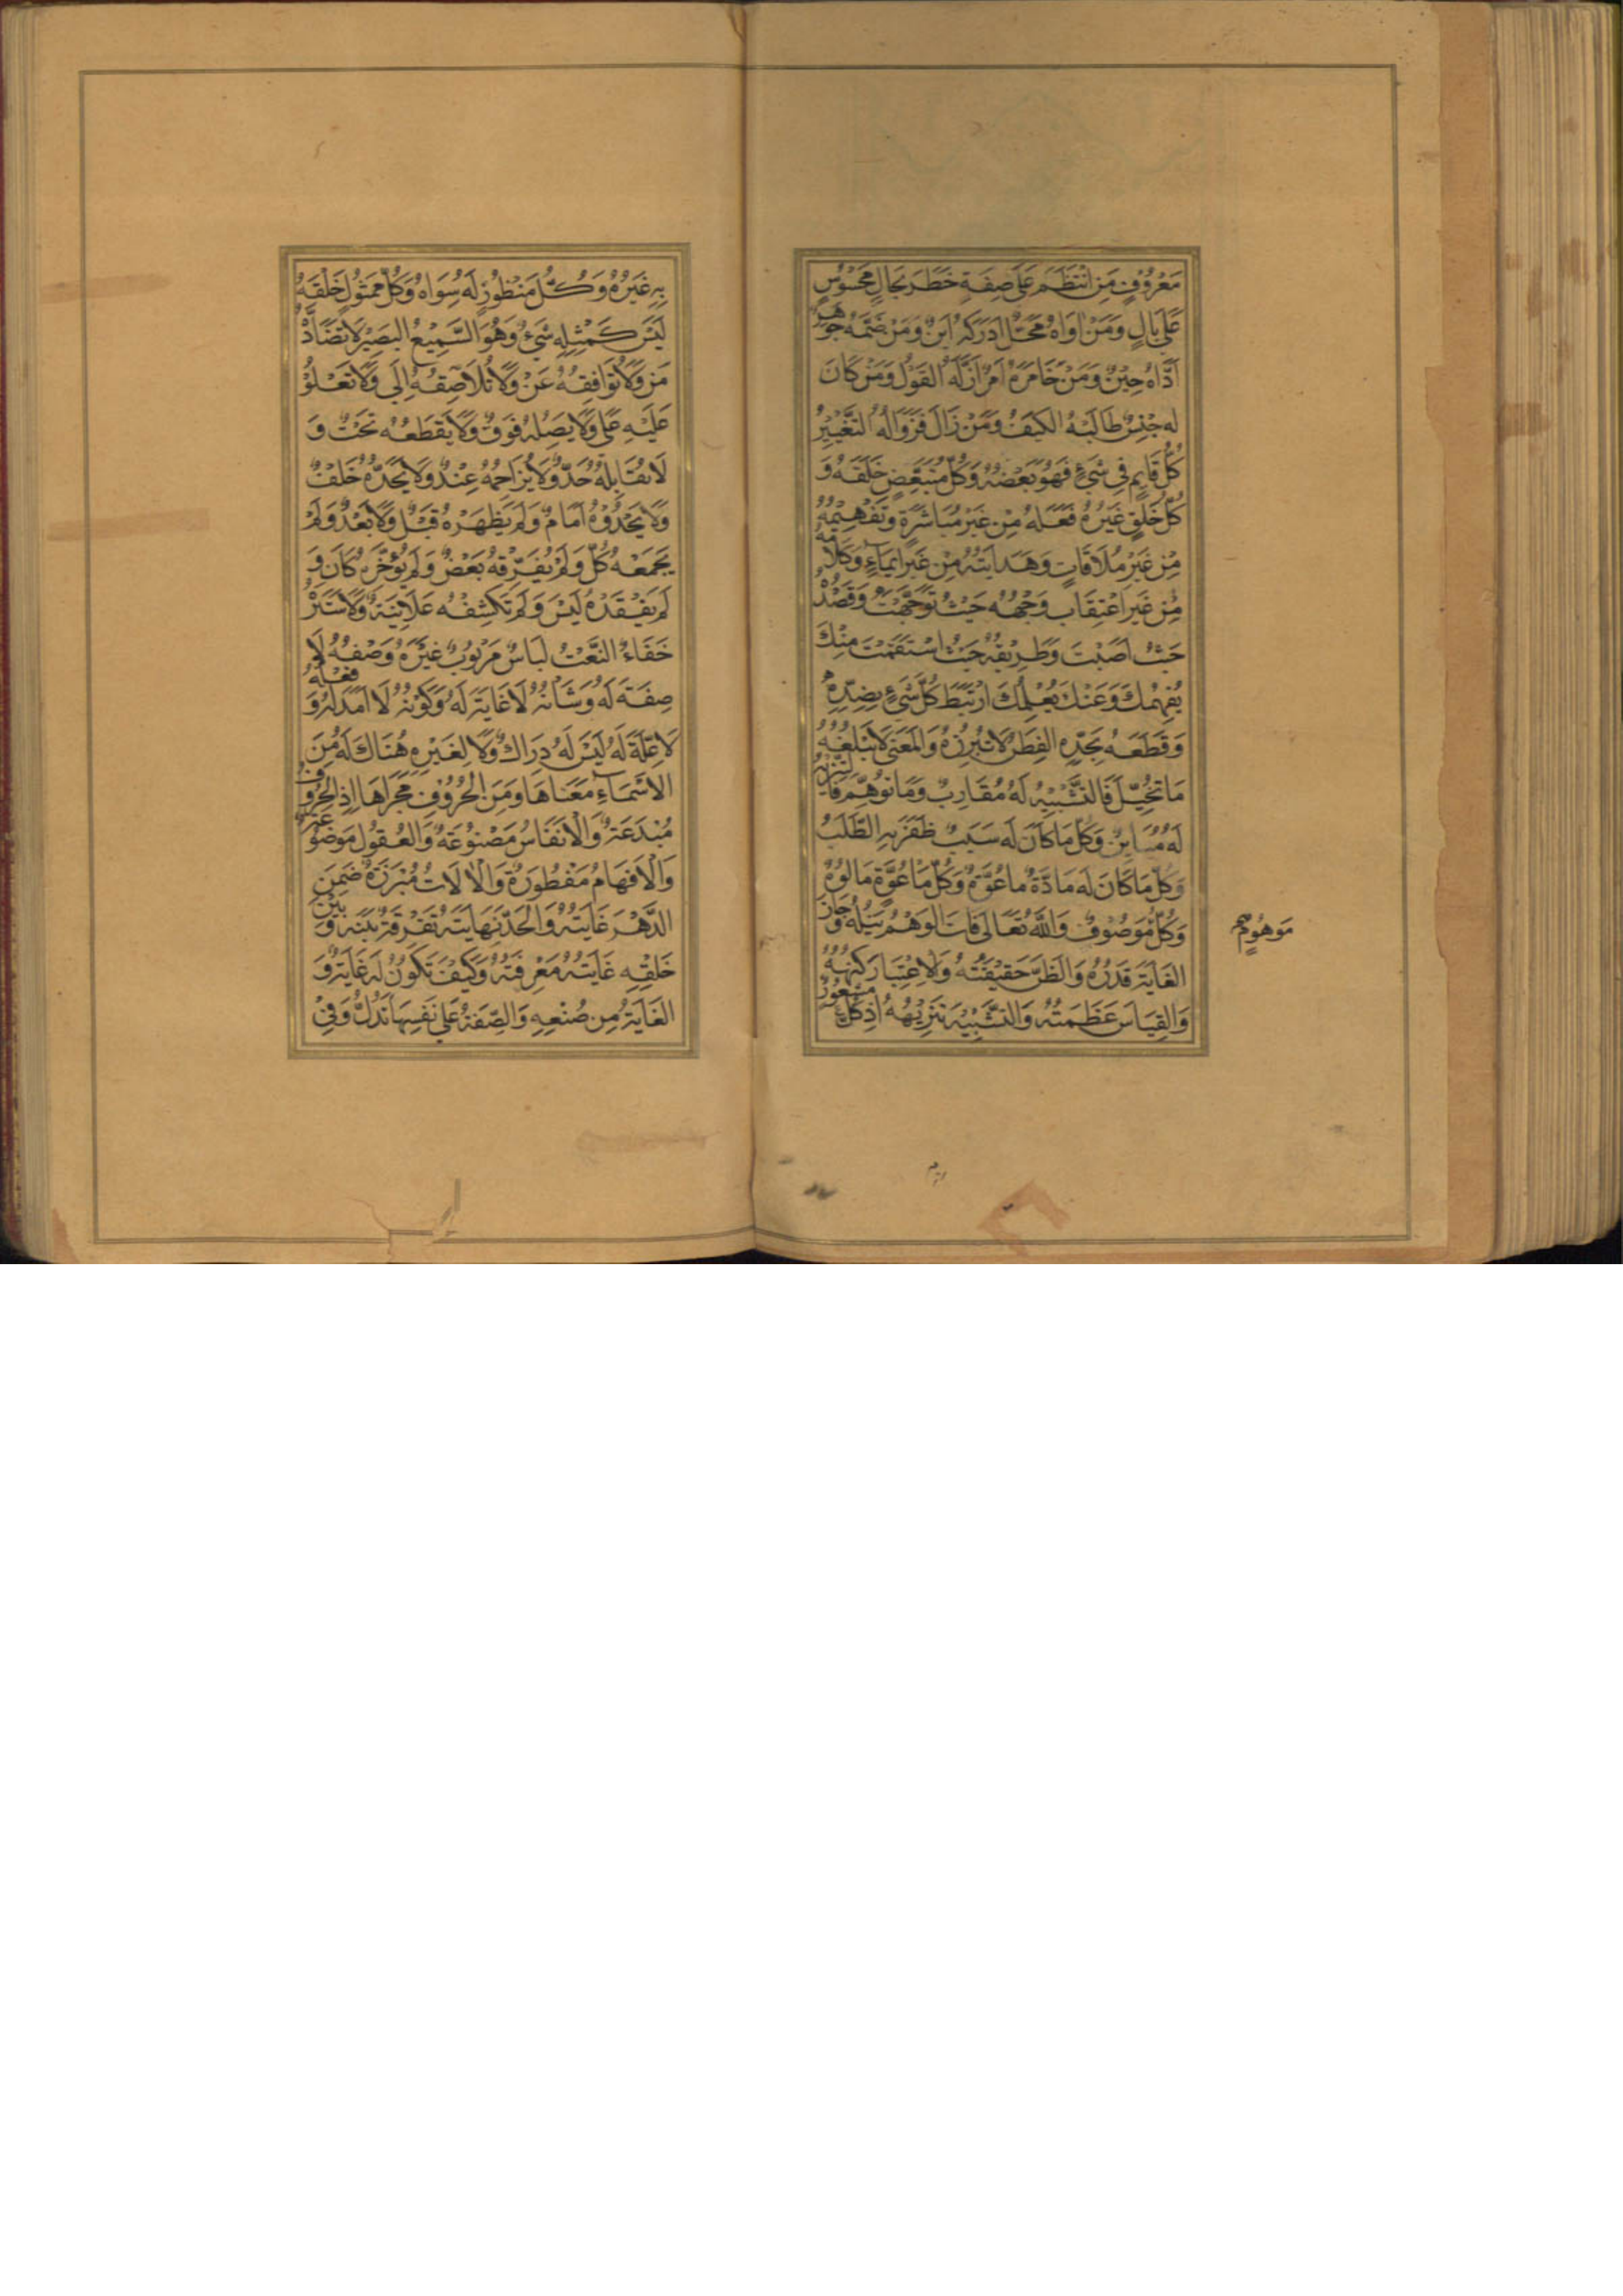 مَعْرُوفٍ مَنِ انْتَظَمَ عَلَى صِفَةٍ خَطَرَ بِحَالٍ مَحْسُوسٍ
عَلَى بَالٍ وَمَنْ اوَاهُ مَحَلٌّ اَدْرَكَهُ اَيْنٌ وَمَنْ ضَمَّهُ جَوْهَرٌ
اَدَّاهُ حِيْنٌ وَمَنْ خَامَرَهُ اَمْرٌ ازَّلَهُ القَوْلُ وَمَنْ كَانَ
لَه جِنْسٌ طَالَبَهُ الكَيْفُ وَمَنْ زَالَ فَزَوَالُهُ التَّغْيِيْرُ
كُلُّ قَايِمٍ فِي شَيْءٍ فَهُوَ بَعْضُهُ وَكُلُّ مُتَبَعِّضٍ خَلَقَهُ وَ
كُلُّ خَلْقٍ غَيْرُهُ فَعَلَهُ مِنْ غَيْرِ مُبَاشَرَةٍ وَتَفْهِيْمُهُ
مِنْ غَيْرِ مُلَاقَاتٍ وَهَدَايَتُهُ مِنْ غَيْرِ ايمَاءٍ وَكَلَامُهُ
مِنْ غَيْرِ اعْتِقَابٍ وَجْهُهُ حَيْثُ تَوَجَّهْتَ وَقَصْدُهُ
حَيْثُ اَصَبْتَ وَطَرِيْقُهُ حَيْثُ اسْتَقَمْتَ مِنْكَ
يُفَهِّمُكَ وَعَنْكَ يُعْلِمُكَ ارْتَبَطَ كُلَّ شَيْءٍ بِضِدِّهِ
وَقَطَعَهُ بِحَدِّهِ الفِطَرُ لَا تُبْرِزُهُ وَالمَعْنَى لَا يَبْلُغُهُ
مَا تَخَيَّلَ فَالتَّشْبِيْهُ لَهُ مُقَارِبٌ وَمَا تَوَهَّمَ فَالتَّنْزِيْهُ
لَهُ مُبَايِنٌ وَكُلُّ مَا كَانَ لَه سَبَبٌ ظَفَرَ بِهِ الطَّلَبُ
وَكُلُّ مَا كَانَ لَه مَادَّةٌ مَاعُوَّةٌ وَكُلُّ مَاعُوَّةٍ مَالُوْهٌ
وَكُلُّ مَوْصُوْفٍ وَاللهُ تَعَالَى فَاتَ الوَهْمَ نَيْلُهُ وَجَازَ
الغَايَةَ قَدْرُهُ وَالظَّنَّ حَقِيْقَتُهُ وَالاِعْتِبَارَ كُنْهُهُ
وَالقِيَاسَ عَظَمَتُهُ وَالتَّشْبِيْهَ تَنْزِيْهُهُ اِذْ كُلُّ مَشْعُوْرٍ
مَوهُومٍ صح
بِهِ غَيْرُهُ وَكُلُّ مَنْظُوْرٍ لَهُ سِوَاهُ وَكُلُّ مَمْثُوْلٍ خَلْقُهُ
لَيْسَ كَمِثْلِهِ شَيْءٌ وَهُوَ السَّمِيْعُ البَصِيْرُ لَا تُضَادُّهُ
مَنْ وَلَا تُوَافِقُهُ عَنْ وَلَا تُلَاصِقُهُ اِلَى وَلَا تَعْلُوْ
عَلَيْهِ عَلَى وَلَا يَصِلُهُ فَوْقٌ وَلَا يَقْطَعُهُ تَحْتٌ وَ
لَا يُقَابِلُهُ حَدٌّ وَلَا يُزَاحِمُهُ عِنْدٌ وَلَا يَحُدُّهُ خَلْفٌ
وَلَا يَحْدُوْهُ اَمَامٌ وَلَمْ يُظْهِرْهُ قَبْلٌ وَلَا بَعْدٌ وَلَمْ
يَجْمَعْهُ كُلٌّ وَلَمْ يُفَرِّقْهُ بَعْضٌ وَلَمْ يُؤَخِّرْهُ كَانَ وَ
لَمْ يَفْقِدْهُ لَيْسَ وَلَمْ تَكْشِفْهُ عَلَانِيَةٌ وَلَا سَتَرَهُ
خَفَاءٌ النَّعْتُ لِبَاسُ مَرْبُوْبٍ غَيْرَهُ وَصْفُهُ لَا
صِفَةَ لَهُ وَشَاْنُهُ لَا غَايَةَ لَهُ وَكَوْنُهُ لَا اَمَدَ لَهُ وَفِعْلُهُ
لَا عِلَّةَ لَهُ لَيْسَ لَهُ دِرَاكٌ وَلَا لِغَيْرِهِ هُنَاكَ لَهُ مِنَ
الاَسْمَاءِ مَعْنَاهَا وَمِنَ الحُرُوْفِ مَجْرَاهَا اِذِ الحُرُوْفُ
مُبْدَعَةٌ وَالاَنْفَاسُ مَصْنُوْعَةٌ وَالعُقُوْلُ مَوْضُوْعَةٌ
وَالاَفْهَامُ مَفْطُوْرَةٌ وَالْاَلَاتُ مُبْرَزَةٌ ضَمِنَ
الدَّهْرَ غَايَتُهُ وَالحَدَّ نِهَايَتُهُ تَفْرِقَةٌ بَيْنَهُ وَبَيْنَ
خَلْقِهِ غَايَتُهُ مَعْرِفَتُهُ وَكَيْفَ تَكُوْنُ لَهُ غَايَةٌ وَ
الغَايَةُ مِنْ صُنْعِهِ وَالصِّفَةُ عَلَى نَفْسِهَا تَدُلُّ وَفِيْ